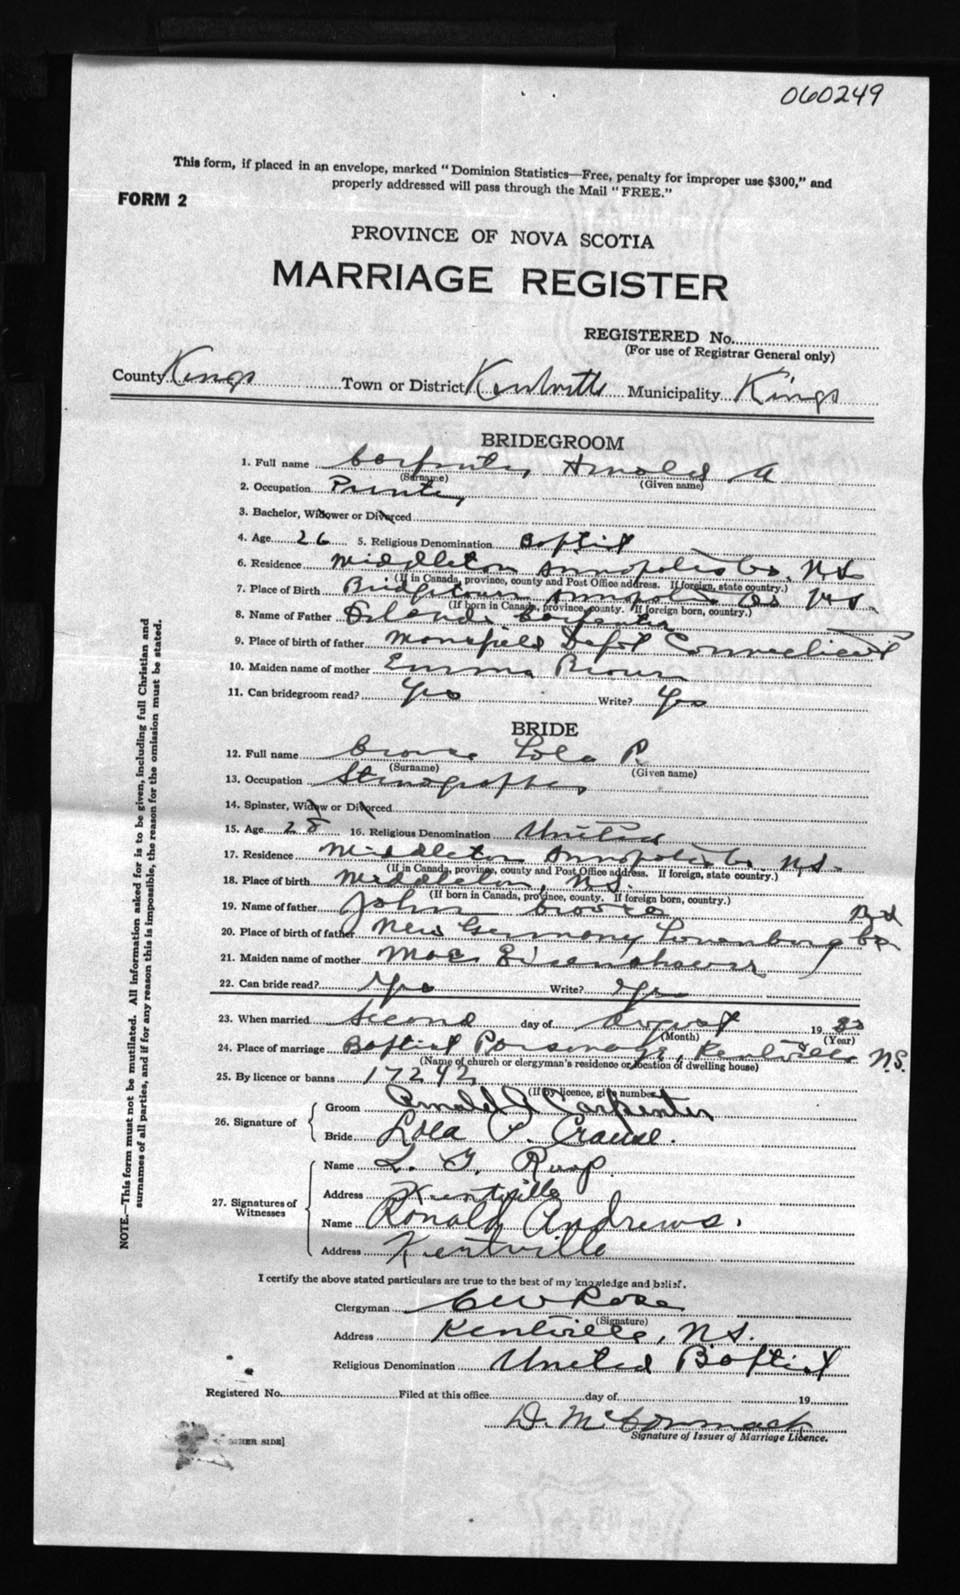 060249
This form, if placed in an envelope, marked "Dominion Statistics—Free, penalty for improper use $300," and
properly addressed will pass through the Mail "FREE."
FORM 2
PROVINCE OF NOVA SCOTIA
MARRIAGE REGISTER
REGISTERED No.
(For use of Registrar General only)
County Kings Town or District Kentville Municipality Kings
BRIDEGROOM
1. Full name Carpenter, Arnold A
(Surname) (Given name)
2. Occupation Printer
3. Bachelor, Widower or Divorced
4. Age 26 5. Religious Denomination Baptist
6. Residence Middleton Annapolis Co. N.S.
(If in Canada, province, county and Post Office address. If foreign, state country.)
7. Place of Birth Bridgetown Annapolis Co N.S.
(If born in Canada, province, county. If foreign born, country.)
8. Name of Father Orlando Carpenter
9. Place of birth of father Mansfield Depot Connecticut
10. Maiden name of mother Emma Brown
11. Can bridegroom read? Yes Write? Yes
BRIDE
12. Full name Crouse Lola P.
(Surname) (Given name)
13. Occupation Stenographer
14. Spinster, Widow or Divorced
15. Age 28 16. Religious Denomination United
17. Residence Middleton Annapolis Co. N.S.
(If in Canada, province, county and Post Office address. If foreign, state country.)
18. Place of birth Middleton, N.S.
(If born in Canada, province, county. If foreign born, country.)
19. Name of father John Crouse
20. Place of birth of father New Germany Lunenburg Co
21. Maiden name of mother Mae Eisenhauer
22. Can bride read? Yes Write? Yes
23. When married Second day of August 19
(Month) (Year)
24. Place of marriage Baptist Parsonage, Kentville N.S.
(Name of church or clergyman's residence or location of dwelling house)
25. By licence or banns 17242
(If by licence, give number.)
26. Signature of
Groom Arnold A Carpenter
Bride Lola P. Crouse.
27. Signatures of Witnesses
Name L. G.
Address Kentville
Name Ronald Andrews.
Address Kentville
I certify the above stated particulars are true to the best of my knowledge and belief.
Clergyman C W Rose
(Signature)
Address Kentville, N.S.
Religious Denomination United Baptist
Registered No. Filed at this office day of 19
D. McCormack
Signature of Issuer of Marriage Licence.
SIDE]
NOTE.—This form must not be mutilated. All information asked for is to be given, including full Christian and
surnames of all parties, and if for any reason this is impossible, the reason for the omission must be stated.